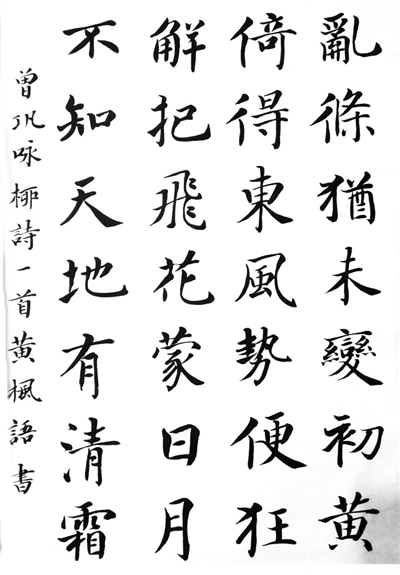 亂條猶未變初黃
倚得東風勢便狂
解把飛花蒙日月
不知天地有清霜
曾巩咏柳詩一首黄楓語書